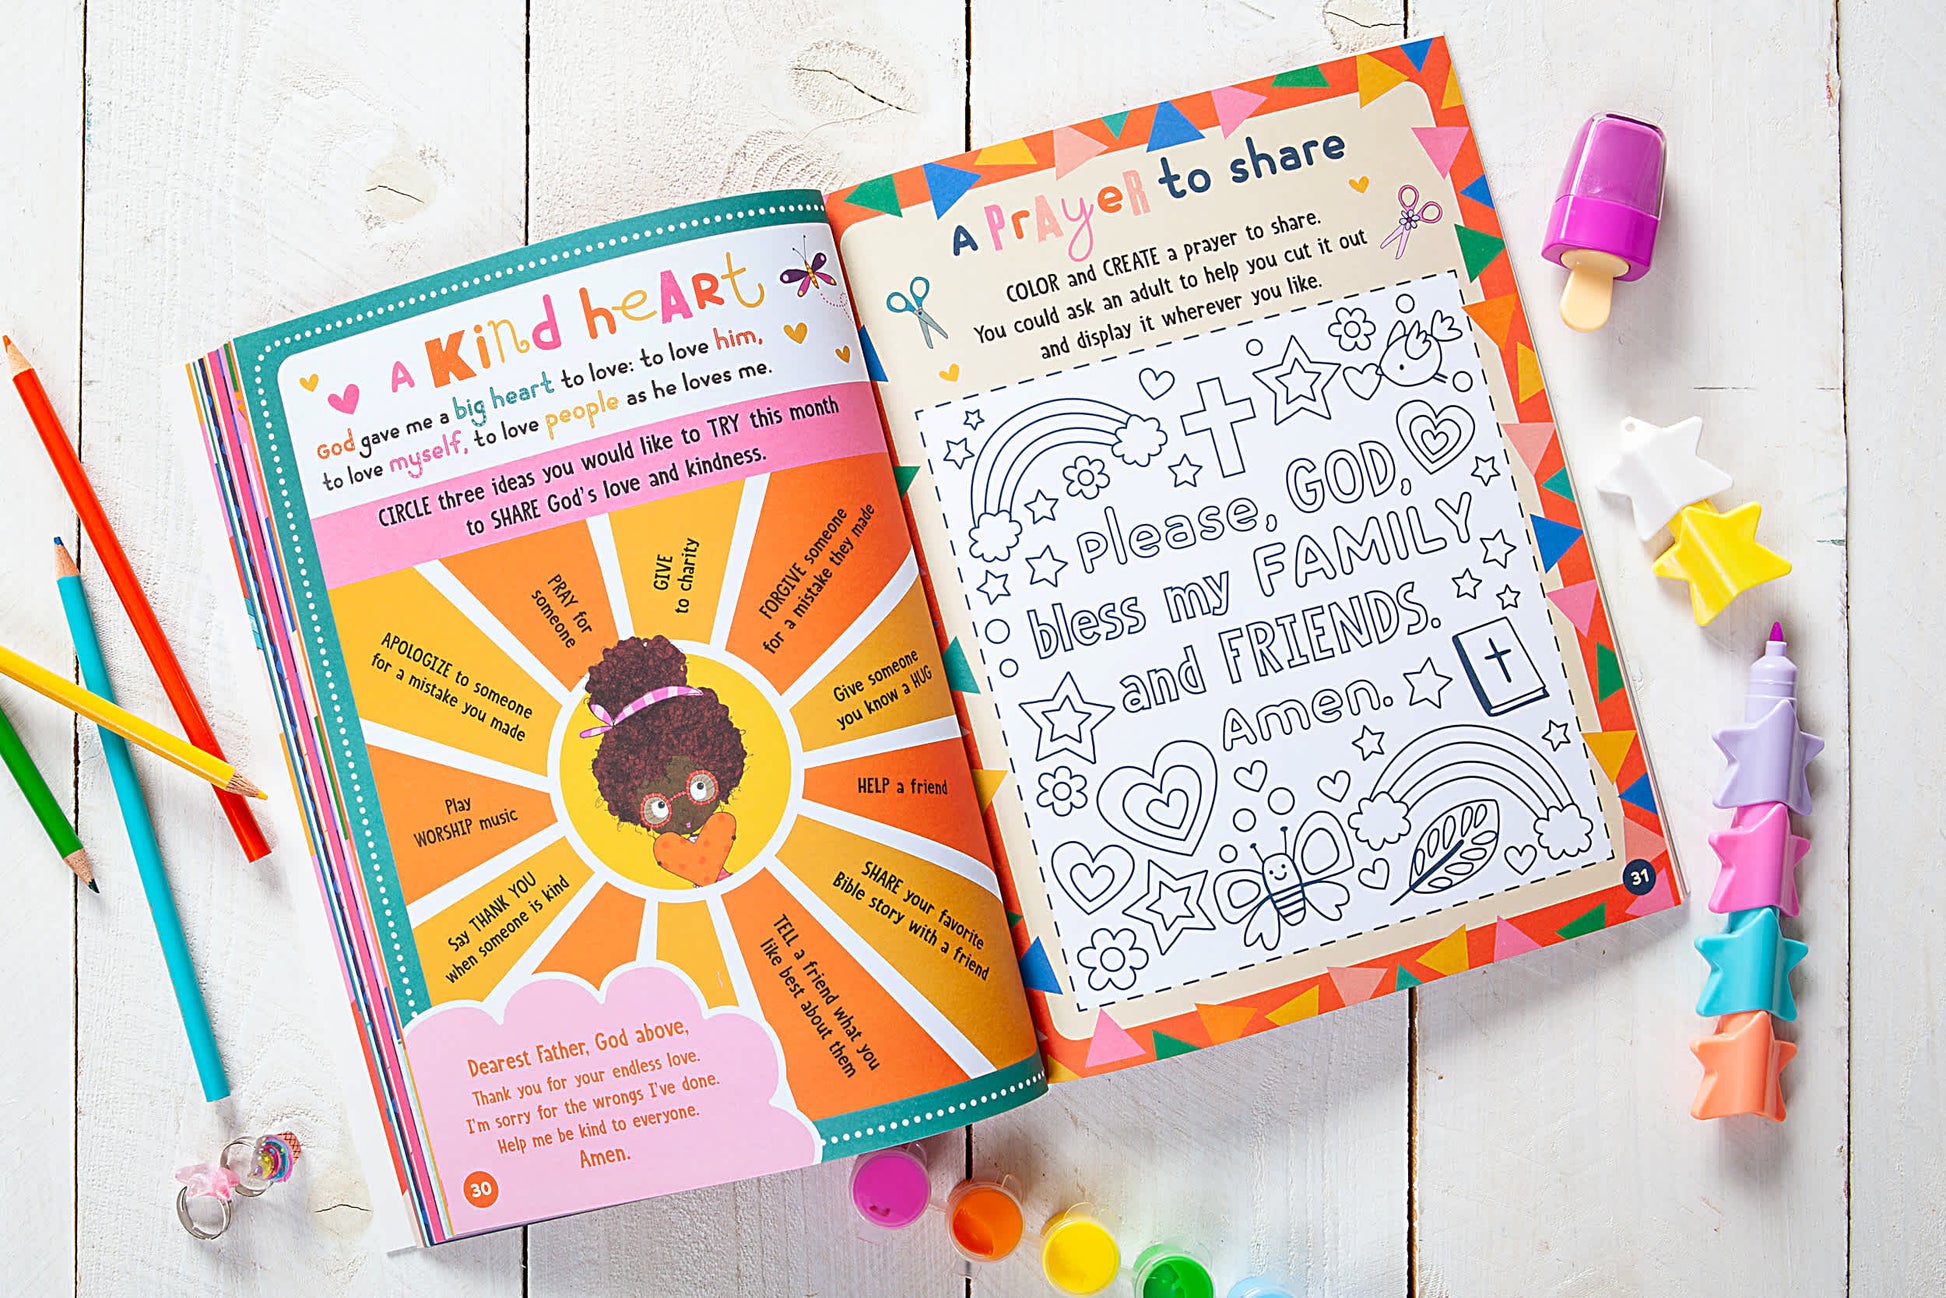 A Kind heArt
God gave me a big heart to love: to love him,
to love myself, to love people as he loves me.
CIRCLE three ideas you would like to TRY this month
to SHARE God's love and kindness.
APOLOGIZE to someone
for a mistake you made
PRAY for
someone
GIVE
to charity
FORGIVE someone
for a mistake they made
Give someone
you know a HUG
HELP a friend
SHARE your favorite
Bible story with a friend
TELL a friend what you
like best about them
Say THANK YOU
when someone is kind
Play
WORSHIP music
Dearest Father, God above,
Thank you for your endless love.
I'm sorry for the wrongs I've done.
Help me be kind to everyone.
Amen.
30
A PrAyeR to share
COLOR and CREATE a prayer to share.
You could ask an adult to help you cut it out
and display it wherever you like.
Please, GOD,
bless my FAMILY
and FRIENDS.
Amen.
31